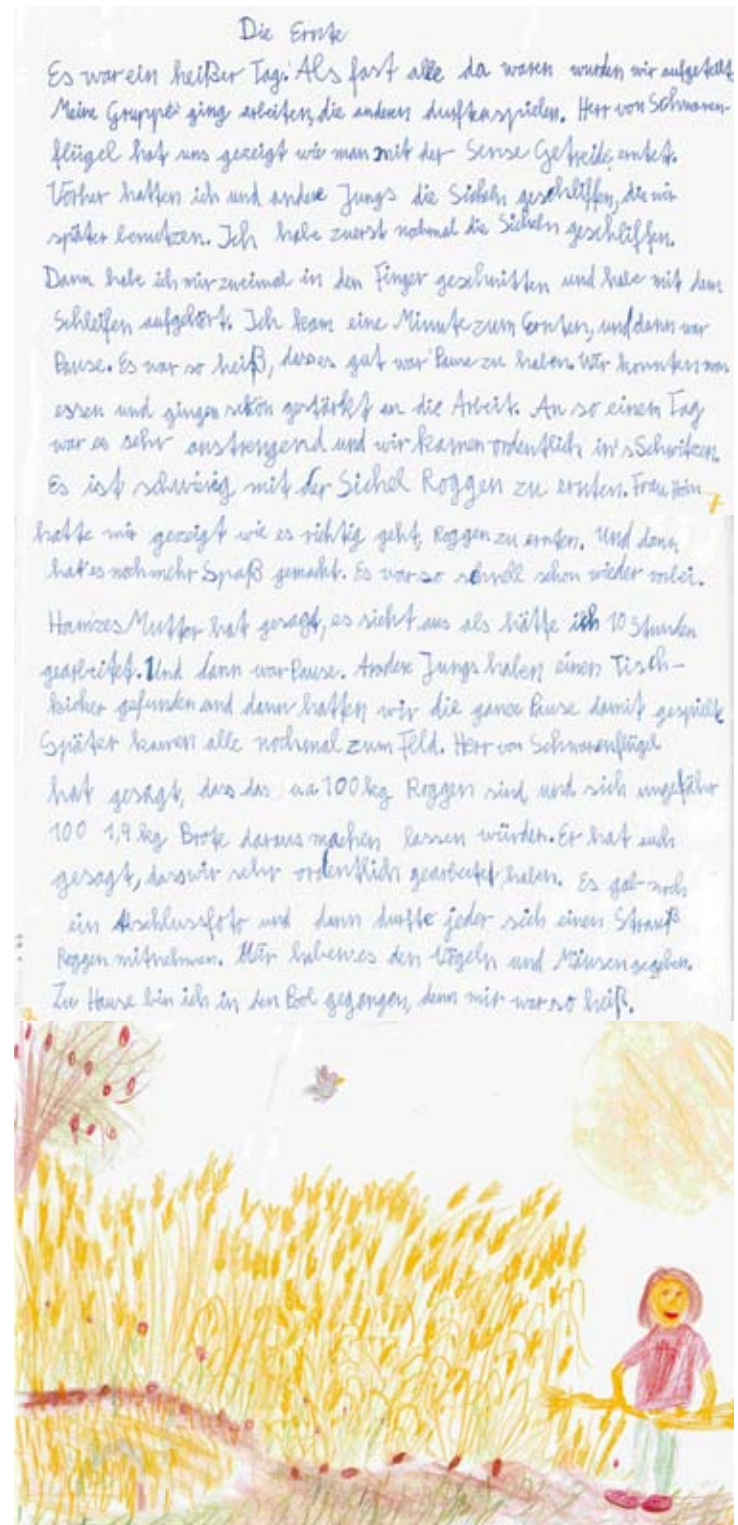 Die Ernte
Es war ein heißer Tag. Als fast alle da waren wurden wir aufgeteilt
Meine Gruppe ging arbeiten, die anderen durften spielen. Herr von Schwaren-
flügel hat uns gezeigt wie man mit der Sense Getreide erntet.
Vorher hatten ich und andere Jungs die Sicheln geschliffen, die wir
später benutzen. Ich habe zuerst nochmal die Sicheln geschliffen.
Dann habe ich mir zweimal in den Finger geschnitten und habe mit dem
Schleifen aufgehört. Ich kam eine Minute zum Ernten, und dann war
Pause. Es war so heiß, dass es gut war Pause zu haben. Wir konnten was
essen und gingen schön gestärkt an die Arbeit. An so einem Tag
war es sehr anstrengend und wir kamen ordentlich in's Schwitzen.
Es ist schwierig mit der Sichel Roggen zu ernten. Frau
hatte mir gezeigt wie es richtig geht, Roggen zu ernten. Und dann
hat es noch mehr Spaß gemacht. Es war so schnell schon wieder vorbei.
Mutter hat gesagt, es sieht aus als hätte ich 10 Stunden
gearbeitet. Und dann war Pause. Andere Jungs haben einen Tisch-
kicker gefunden und dann hatten wir die ganze Pause damit gespielt
Später kamen alle nochmal zum Feld. Herr von Schwarenflügel
hat gesagt, dass das ca 100 kg Roggen sind und sich ungefähr
100 1,9 kg Brote daraus machen lassen würden. Er hat auch
gesagt, dass wir sehr ordentlich gearbeitet haben. Es gab noch
ein Abschlussfoto und dann durfte jeder sich einen Strauß
Roggen mitnehmen. Wir haben es den Vögeln und Mäusen gegeben.
Zu Hause bin ich in den Pool gegangen, denn mir war so heiß.